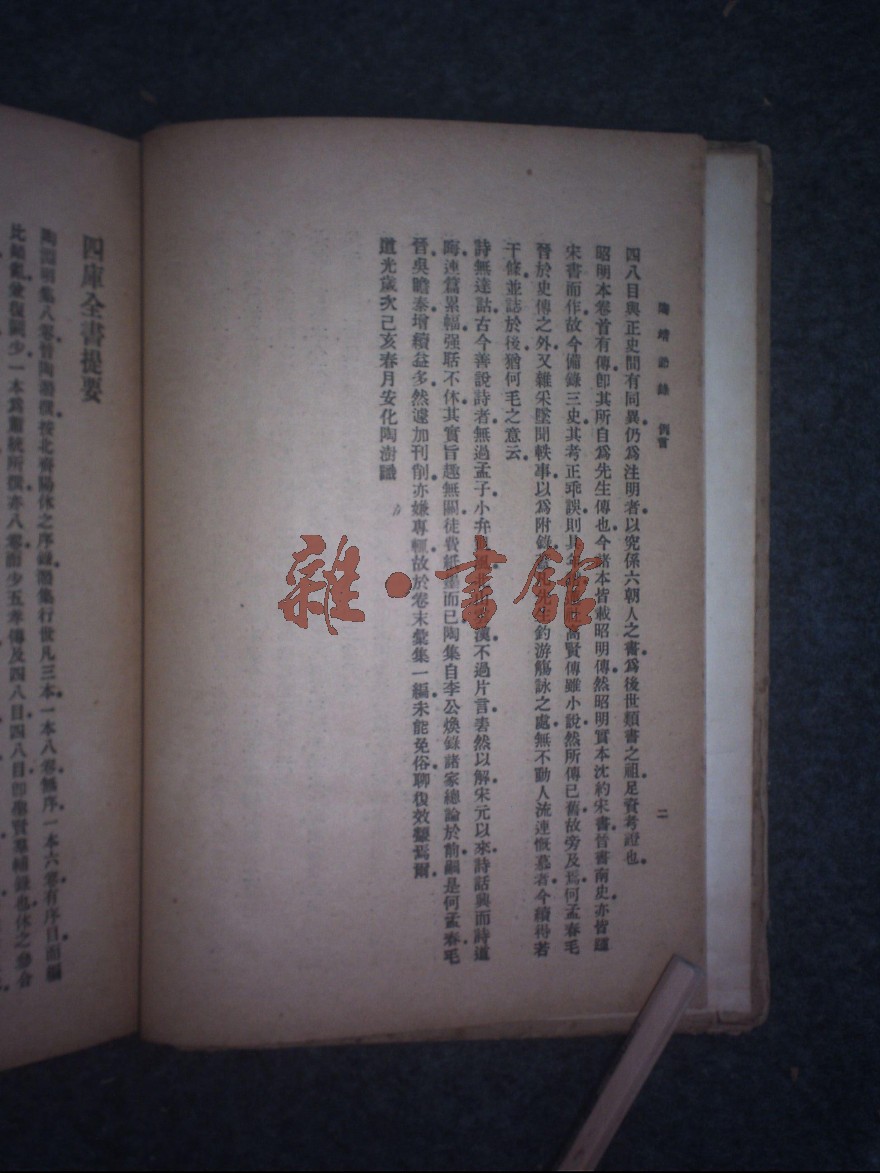 陶靖節錄 例言 二
四八目與正史間有同異仍爲注明者以究係六朝人之書爲後世類書之祖足資考證也
昭明本卷首有傳卽其所自爲先生傳也今諸本皆載昭明傳然昭明實本沈約宋書晉書南史亦皆踵
宋書而作故今備錄三史其考正乖誤則具年 高賢傳雖小說然所傳已舊故旁及焉何孟春毛
晉於史傳之外又雜采墜聞軼事以爲附錄 釣游觴詠之處無不動人流連慨慕者今續得若
干條並誌於後猶何毛之意云
詩無達詁古今善說詩者無過孟子小弁 漢不過片言砉然以解宋元以來詩話興而詩道
晦連篇累幅强聒不休其實旨趣無關徒費紙墨而已陶集自李公煥錄諸家總論於前嗣是何孟春毛
晉吳瞻泰增續益多然遽加刊削亦嫌專輒故於卷末彙集一編未能免俗聊復效顰焉爾
道光歲次己亥春月安化陶澍識
雜·書館
四庫全書提要
陶淵明集八卷晉陶潛撰按北齊陽休之序錄潛集行世凡三本一本八卷無序一本六卷有序目而編
比顚亂兼復闕少一本爲蕭統所撰亦八卷而少五孝傳及四八目四八目卽聖賢羣輔錄也休之參合